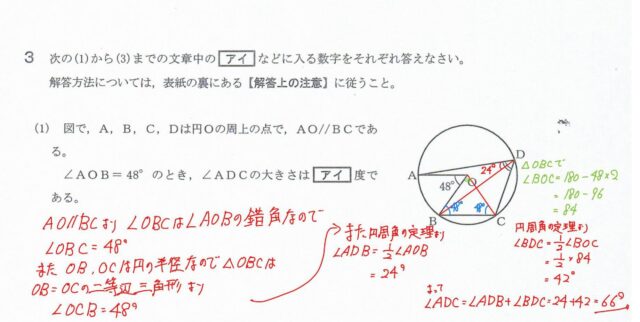 3 次の(1)から(3)までの文章中の アイ などに入る数字をそれぞれ答えなさい。
解答方法については，表紙の裏にある【解答上の注意】に従うこと。
(1) 図で，A，B，C，Dは円Oの周上の点で，AO//BCであ
る。
∠AOB＝48°のとき，∠ADCの大きさは アイ 度で
ある。
A
B
C
D
O
48°
24°
48°
48°
AO//BCより ∠OBCは∠AOBの錯角なので
∠OBC=48°
また OB，OCは円の半径なので△OBCは
OB=OCの二等辺三角形より
∠OCB=48°
また円周角の定理より
∠ADB=1/2∠AOB
=24°
△OBCで
∠BOC=180-48×2
=180-96
=84
円周角の定理より
∠BDC=1/2∠BOC
=1/2×84
=42°
よって
∠ADC=∠ADB+∠BDC=24+42=66°